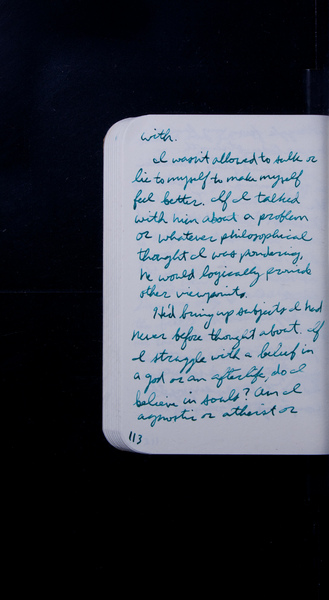 with.
I wasn't allowed to sulk or
lie to myself to make myself
feel better. If I talked
with him about a problem
or whatever philosophical
thought I was pondering,
he would logically provide
other viewpoints.
He'd bring up subjects I had
never before thought about. If
I struggle with a belief in
a god or an afterlife, do I
believe in souls? Am I
agnostic or atheist or
113